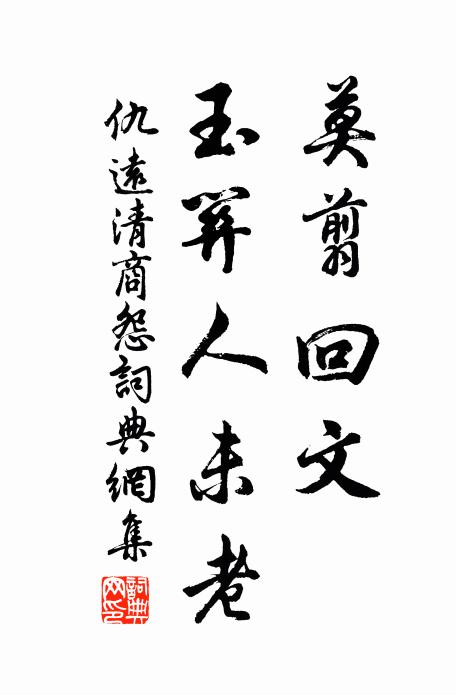 莫翦回文
玉笄人未老
仇遠清商怨詞典網集
詞典
网印